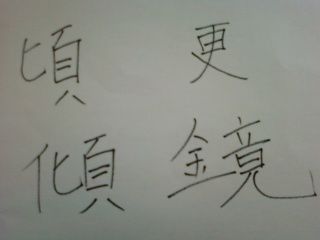 頃 更
傾 鏡